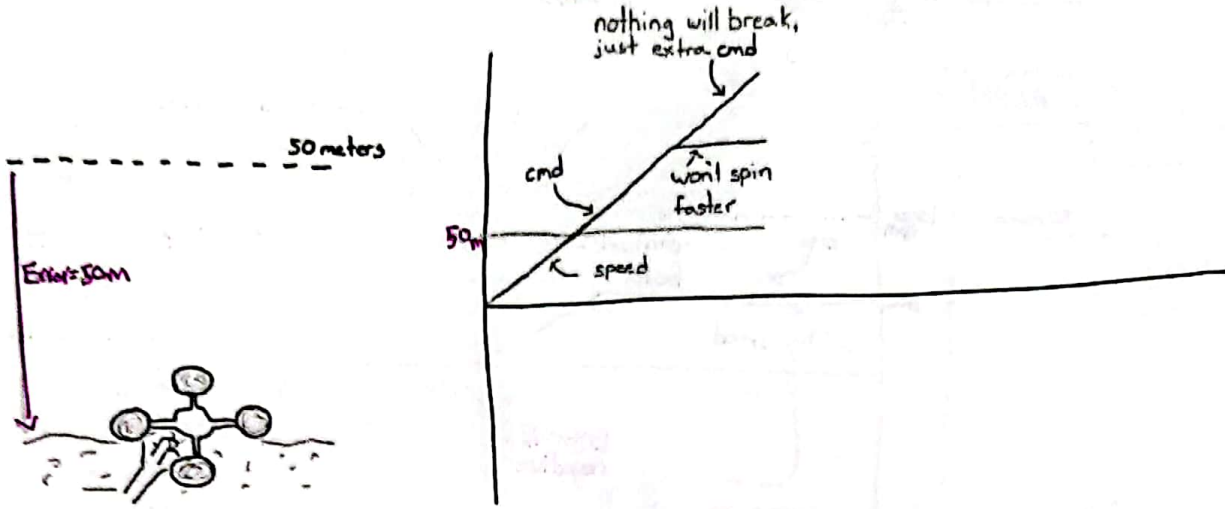 50 meters
Error=50m
nothing will break,
just extra cmd
cmd
won't spin
faster
50m
speed